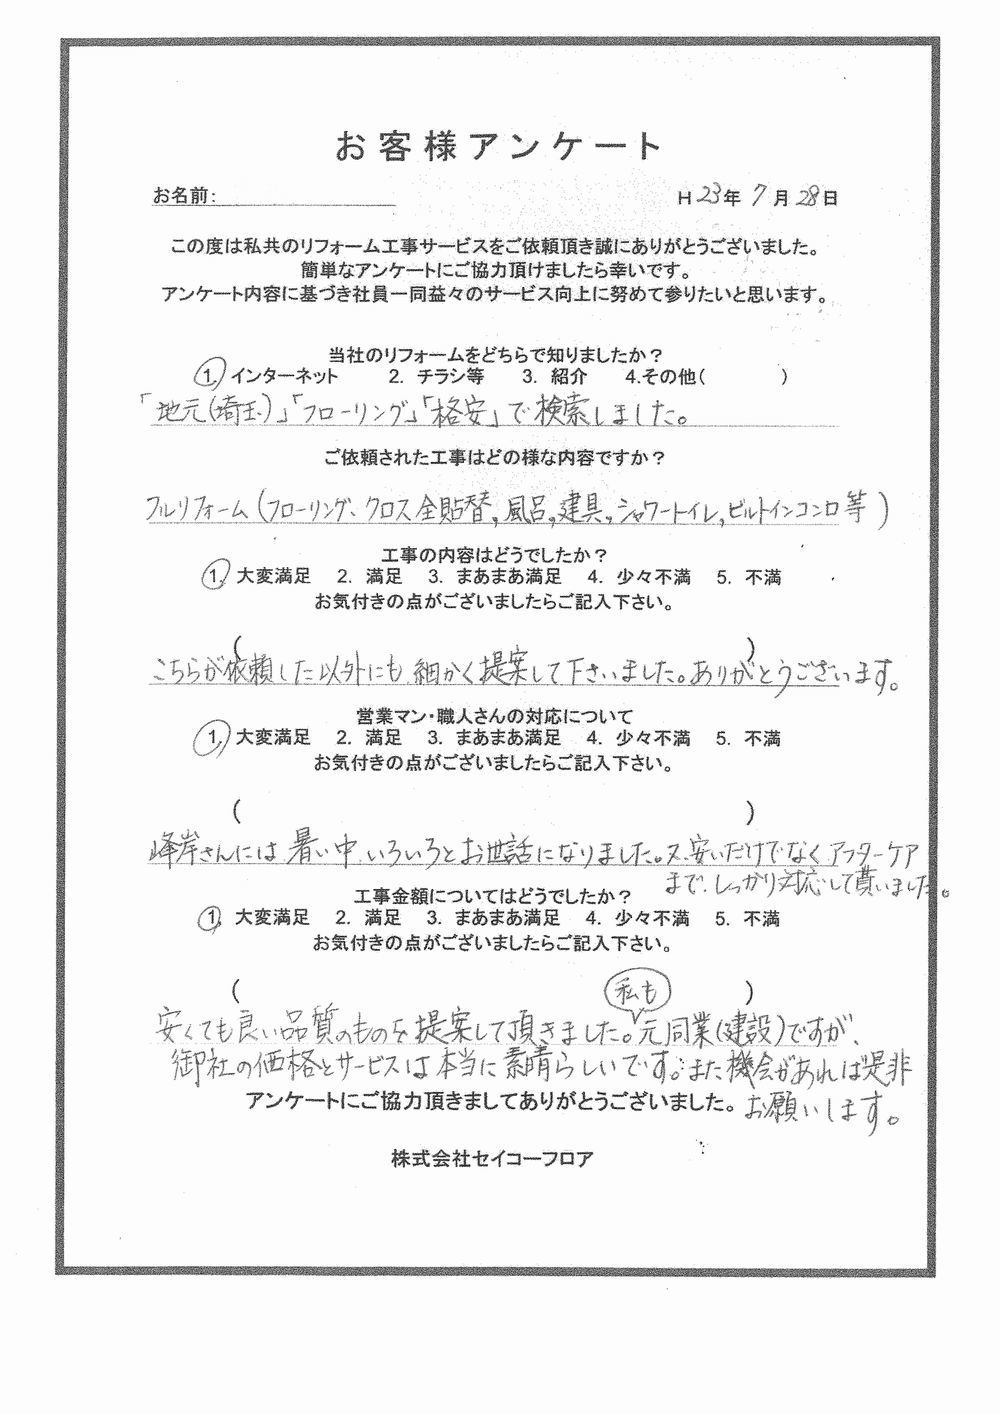 お客様アンケート
お名前:
H 23年 7月 28日
この度は私共のリフォーム工事サービスをご依頼頂き誠にありがとうございました。
簡単なアンケートにご協力頂けましたら幸いです。
アンケート内容に基づき社員一同益々のサービス向上に努めて参りたいと思います。
当社のリフォームをどちらで知りましたか？
1. インターネット 2. チラシ等 3. 紹介 4.その他( )
「地元(埼玉)」「フローリング」「格安」で検索しました。
ご依頼された工事はどの様な内容ですか？
フルリフォーム(フローリング、クロス全貼替,風呂,建具,シャワートイレ,ビルトインコンロ等)
工事の内容はどうでしたか？
1. 大変満足 2. 満足 3. まあまあ満足 4. 少々不満 5. 不満
お気付きの点がございましたらご記入下さい。
( )
こちらが依頼した以外にも細かく提案して下さいました。ありがとうございます。
営業マン・職人さんの対応について
1. 大変満足 2. 満足 3. まあまあ満足 4. 少々不満 5. 不満
お気付きの点がございましたらご記入下さい。
( )
峰岸さんには暑い中いろいろとお世話になりました。又、安いだけでなくアフターケア
まで、しっかり対応して貰いました。
工事金額についてはどうでしたか？
1. 大変満足 2. 満足 3. まあまあ満足 4. 少々不満 5. 不満
お気付きの点がございましたらご記入下さい。
( )
私も
安くても良い品質のものを提案して頂きました。元同業(建設)ですが、
御社の価格とサービスは本当に素晴らしいです。また機会があれば是非
お願いします。
アンケートにご協力頂きましてありがとうございました。
株式会社セイコーフロア